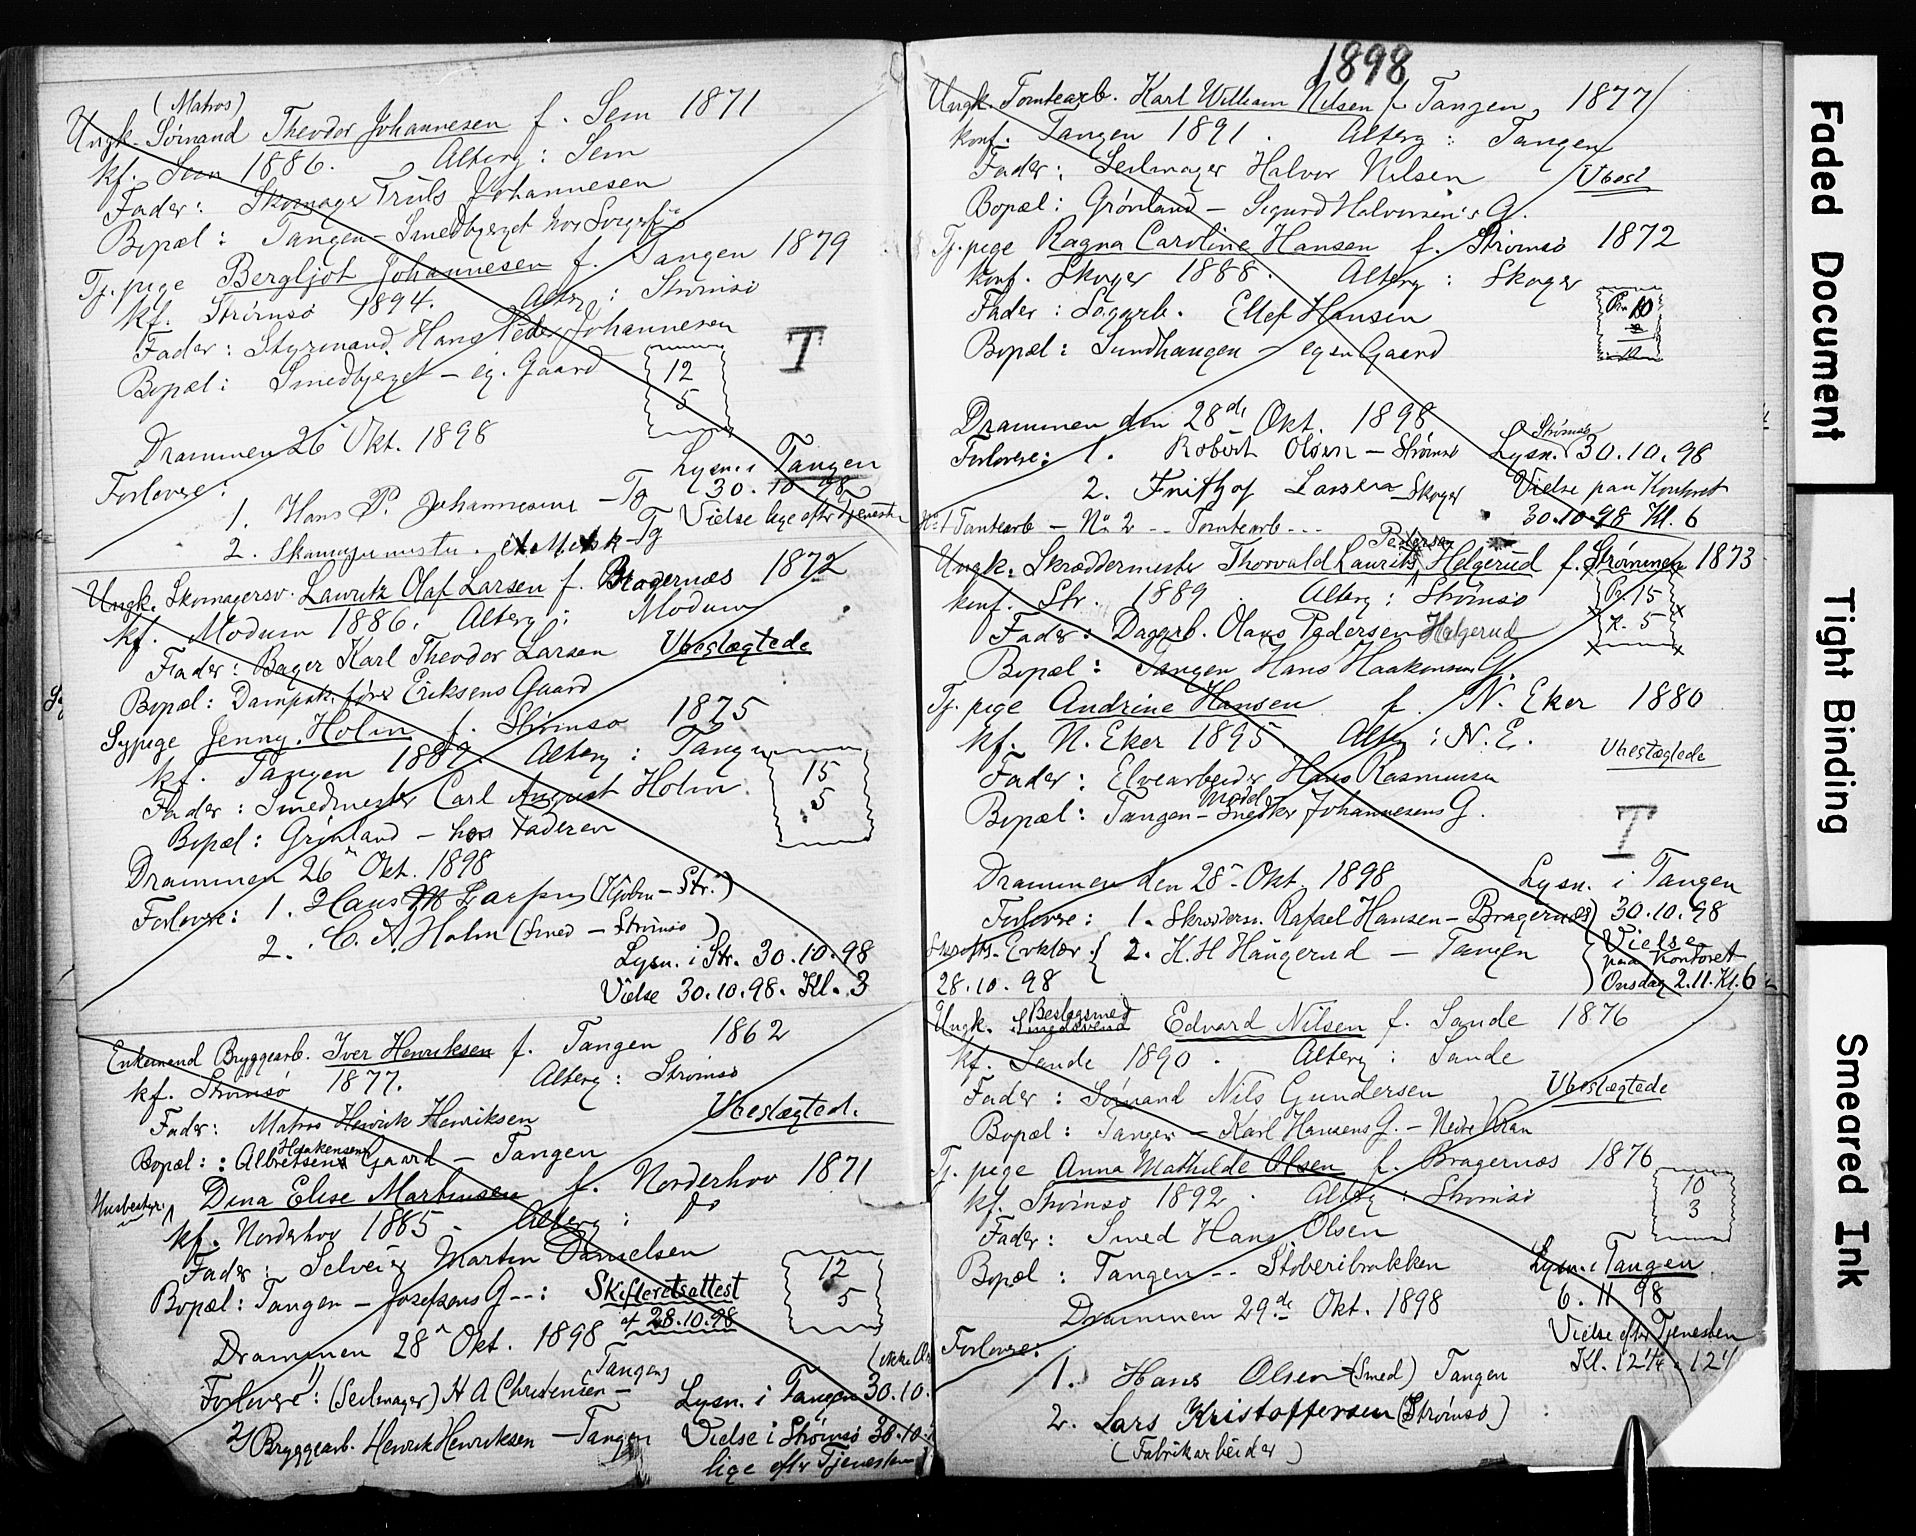 (Matros)
Ungk. Sømand Theodor Johannesen f. Sem 1871
kf. Sem 1886. Alterg: Sem
Fader: Skomager Truls Johannesen
Bopæl: Tangen - Smedbjerget hos
Tj. pige Bergljot Johannesen f. Tangen 1879
kf. Strømsø 1894. Alterg: Strømsø
Fader: Styrmand Hans Peder Johannesen
Bopæl: Smedbjerget - eg. Gaard
12
5
T
Drammen 26 Okt. 1898
Forlovere:
Lysn. i Tangen
30.10.98
1. Hans P. Johannesen - Tg
Vielse lige efter Tjenesten
2. Skomagermester - Tg
Ungk. Skomagersv. Lauritz Olaf Larsen f. Bragernæs 1872
kf. Modum 1886. Alterg: Modum
Fader: Bager Karl Theodor Larsen
Ubeslægtede
Bopæl: Dampsk.fører Eriksens Gaard
Sypige Jenny Holm f. Strømsø 1875
kf. Tangen 1889. Alterg: Tangen
Fader: Smedmester Carl August Holm
15
5
Bopæl: Grønland - hos Faderen
Drammen 26 Okt. 1898
Forlovere: 1. Hans M Larsen
2. C. A. Holm (Smed - Strømsø)
Lysn. i Str. 30.10.98
Vielse 30.10.98. Kl. 3
Enkemand Bryggearb. Iver Henriksen f. Tangen 1862
kf. Strømsø 1877. Alterg: Strømsø
Fader: Matros Henrik Henriksen
Ubeslægted.
Haakensens
Bopæl: Albretsens Gaard - Tangen
Husbestyr. Dina Elise Martinsen f. Norderhov 1871
kf. Norderhov 1885. Alterg: do
Fader: Selveier Martin Danielsen
Bopæl: Tangen - Josefsens G--:
Skifteretsattest
af 28.10.98
12
5
Drammen 28 Okt. 1898
Forlovere: 1) (Seilmager) H A Christensen - (Tangen)
Lysn. i Tangen 30.10.
2) Bryggearb. Henrik Henriksen - Tangen
Vielse i Strømsø 30.10.
lige efter Tjenesten
1898
Ungk. Tomtearb. Karl William Nilsen f. Tangen 1877
konf. Tangen 1891. Alterg: Tangen
Fader: Seilmager Halvor Nilsen
Ubesl
Bopæl: Grønland - Sigurd Halvorsen's G.
Tj. pige Ragna Caroline Hansen f. Strømsø 1872
konf. Skoger 1888. Alterg: Skoger
Fader: Sagarb. Ellef Hansen
Pr. 10
Bopæl: Sundhaugen - egen Gaard
Drammen den 28de Okt. 1898
Forlovere: 1. Robert Olsen - Strømsø
Strømsø
Lysn. 30.10.98
2. Frithjof Larsen - Skoger
Vielse paa Kontoret
30.10.98 Kl. 6
No 1 Tomtearb - No 2 -- Tomtearb...
Pedersen
Ungk. Skræddermester Thorvald Laurits Helgerud f. Strømmen 1873
konf. Str. 1889. Alterg: Strømsø
Pr. 15
K. 5
Fader: Dagarb. Olaus Pedersen Helgerud
Bopæl: Tangen Hans Haakensens G.
Tj. pige Andrine Hansen f. N. Eker 1880
kf. N. Eker 1895. Alterg: N. E.
Ubeslægtede
Fader: Elvearbeider Hans Rasmussen
Model-
Bopæl: Tangen - Snedker Johannesens G.
T
Drammen den 28 - Okt. 1898
Lysn. i Tangen
30.10.98
Forlovere: 1. Skrædderm. Rafael Hansen - Bragernæs
2. K. H Haugerud - Tangen
28.10.98
Vielse
paa Kontoret
Onsdag 2.11. Kl. 6
Beslagsmed
Ungk. Smedsvend Edvard Nilsen f. Sande 1876
kf. Sande 1890. Alterg: Sande
Fader: Sømand Nils Gundersen
Ubeslægtede
Bopæl: Tangen - Karl Hansens G. - Nedre Kran
Tj. pige Anna Mathilde Olsen f. Bragernæs 1876
kf. Strømsø 1892. Alterg: Strømsø
10
3
Fader: Smed Hans Olsen
Bopæl: Tangen -- Støberibrakken
Lysn. i Tangen
6.11 98
Drammen 29de Okt. 1898
Vielse efter Tjenesten
Kl. 12 1/4 a 12 1/
Forlovere:
1. Hans Olsen (Smed) Tangen
2. Lars Kristoffersen (Strømsø)
(Fabrikarbeider)
Faded Document
Tight Binding
Smeared Ink